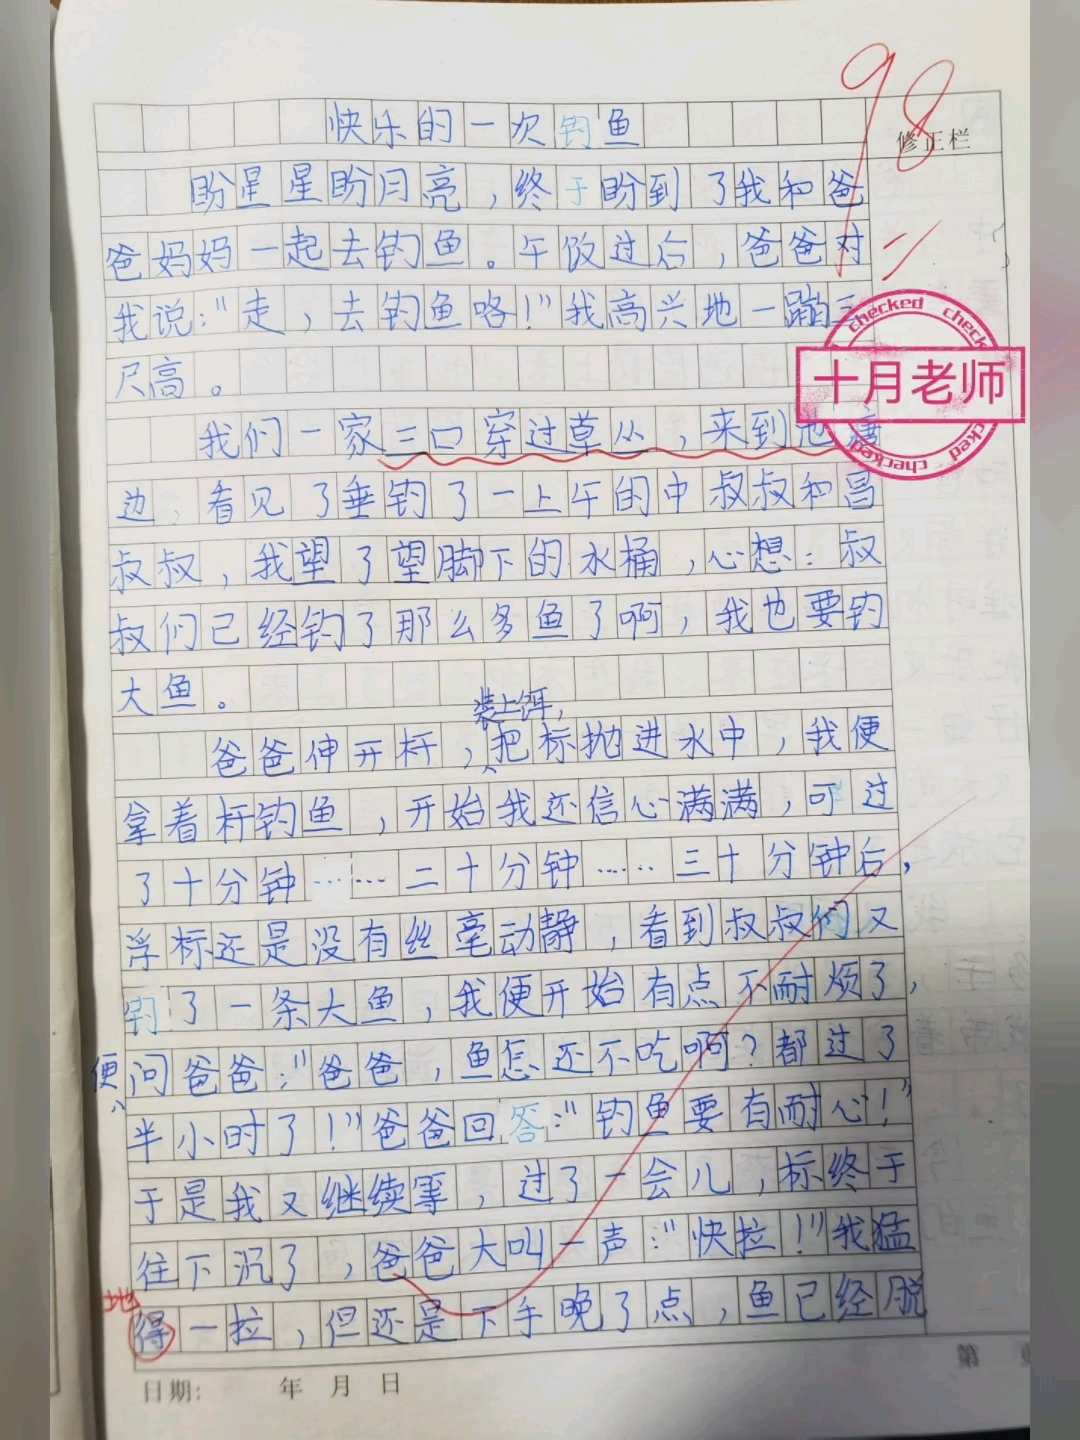 98
修正栏
快乐的一次钓鱼
盼星星盼月亮，终于盼到了我和爸
爸妈妈一起去钓鱼。午饭过后，爸爸对
我说："走，去钓鱼咯！"我高兴地一蹦三
尺高。
checked checked
十月老师
checked checked
我们一家三口穿过草丛，来到池塘
边，看见了垂钓了一上午的申叔叔和昌
叔叔，我望了望脚下的水桶，心想：叔
叔们已经钓了那么多鱼了啊，我也要钓
大鱼。
装上饵，
爸爸伸开杆，把标抛进水中，我便
拿着杆钓鱼，开始我还信心满满，可过
了十分钟……二十分钟……三十分钟后，
浮标还是没有丝毫动静，看到叔叔们又
钓了一条大鱼，我便开始有点不耐烦了，
便问爸爸："爸爸，鱼怎还不吃啊？都过了
半小时了！"爸爸回答："钓鱼要有耐心！"
于是我又继续等，过了一会儿，标终于
往下沉了，爸爸大叫一声："快拉！"我猛
地
得一拉，但还是下手晚了点，鱼已经脱
日期： 年 月 日